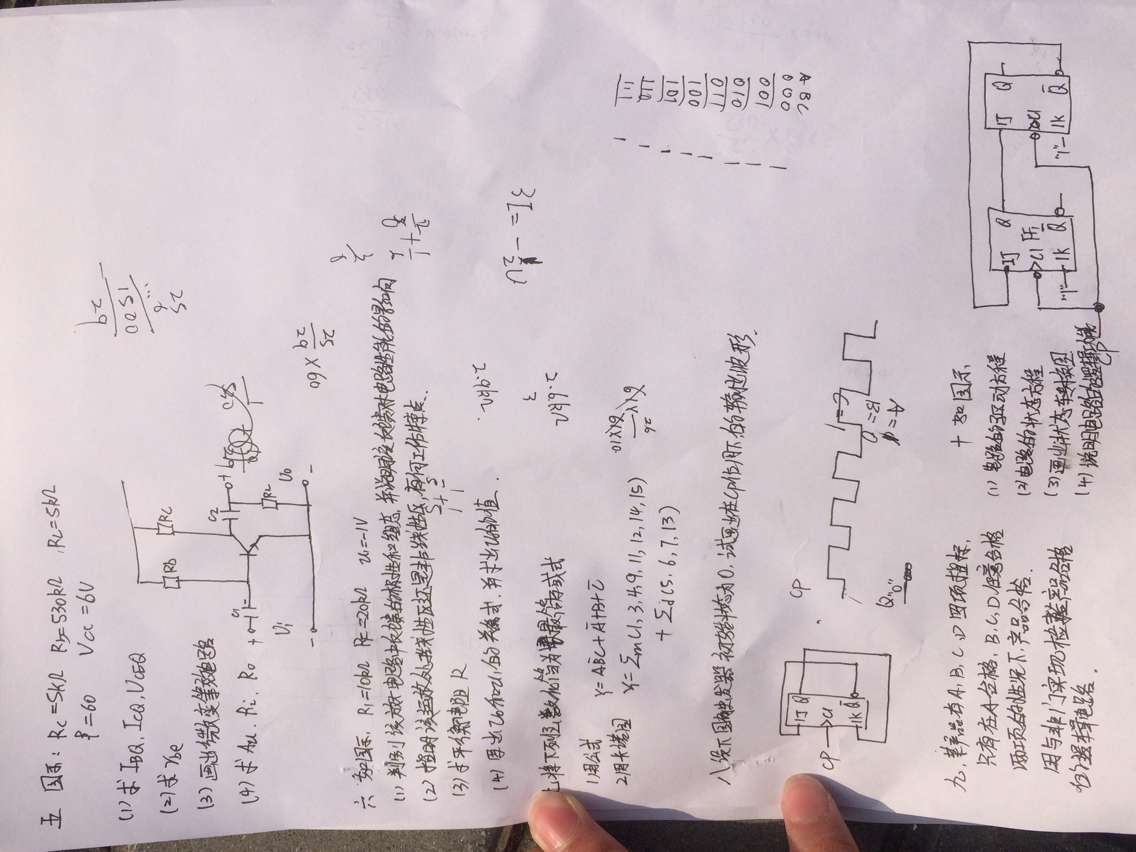 五 图示: Rc=5kΩ Rb=530kΩ RL=5kΩ
β=60 Vcc=6V
(1)求 IBQ, ICQ, UCEQ
(2)求 rbe
(3)画出微变等效电路
(4)求 Au. Ri. Ro
Rb
Rc
C1
C2
RL
Ui
Uo
六 如图示, R1=10kΩ RF=20kΩ ui=-1V
(1)判别该放大电路中反馈的极性和组态,并说明该反馈对电路性能的影响
(2)指明该运放处在线性区还是非线性区,有何工作特点.
(3)求平衡电阻R
(4)写出uo和ui的关系式,并求出uo的值.
七.将下列函数化简为最简与或式
1用公式 Y=AB̄C+Ā+B+C̄
2用卡诺图 Y=Σm(1,3,4,9,11,12,14,15)
+Σd(5.6,7,13)
八 设下图触发器初始状态为0,试画出在CP作用下的输出波形.
CP
1J Q
C1
1K Q̄
CP
Q"0"
C=1
B=0
A=
九,某产品有A,B,C,D四项指标,
只有在A合格,B,C,D任意合格
两项的情况下,产品合格.
用与非门实现检验产品合格
的逻辑电路.
十 如图示,
(1)电路的驱动方程
(2)电路的状态方程
(3)画出状态转换图
(4)说明电路的逻辑功能
1J Q
C1
1K Q̄
"1"
1J Q
C1
1K Q̄
"1"
CP
26
1500
×60
ABC
000
001
010
011
100
101
110
111